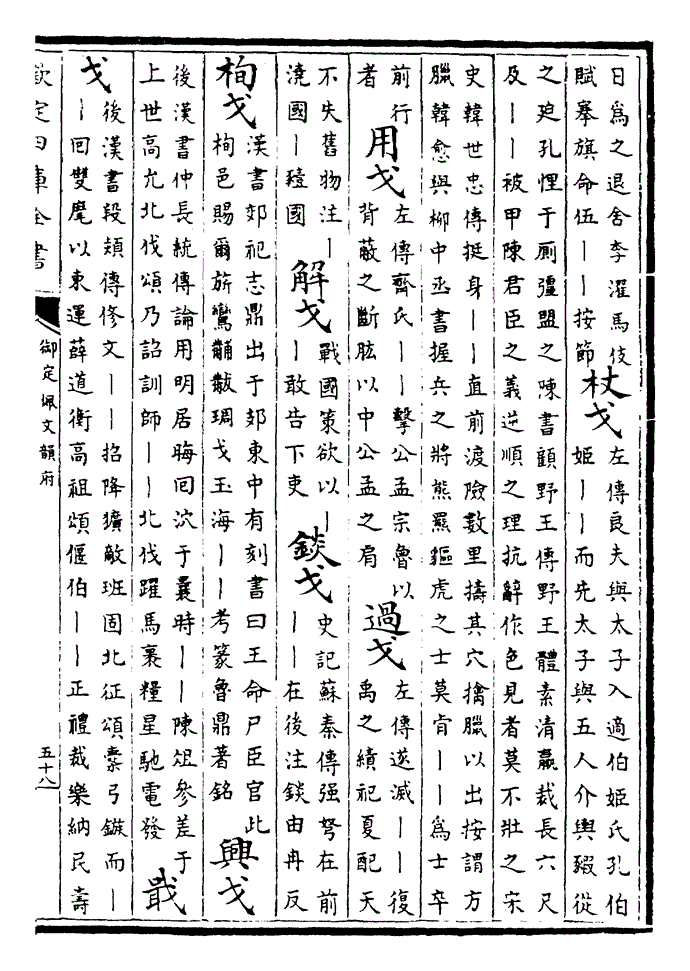 日為之退舍李濯馬伎
賦搴旗命伍丨丨按節
杖戈
左傳良夫與太子入適伯姬氏孔伯
姬丨丨而先太子與五人介輿豭從
之廹孔悝于厠彊盟之陳書顧野王傳野王體素清羸裁長六尺
及丨丨被甲陳君臣之義逆順之理抗辭作色見者莫不壯之宋
史韓世忠傳挺身丨丨直前渡險數里擣其穴擒臘以出按謂方
臘韓愈與柳中丞書握兵之將熊羆貙虎之士莫肯丨丨為士卒
前行
者
用戈
左傳齊氏丨丨擊公孟宗魯以
背蔽之斷肱以中公孟之肩
過戈
左傳遂滅丨丨復
禹之績祀夏配天
不失舊物注丨
澆國丨殪國
解戈
戰國策欲以丨
丨敢告下吏
錟戈
史記蘇秦傳强弩在前
丨丨在後注錟由冉反
栒戈
漢書郊祀志鼎出于郊東中有刻書曰王命尸臣官此
栒邑賜爾旂鸞黼黻琱戈玉海丨丨考篆魯鼎著銘
興戈
後漢書仲長統傳論用明居晦回泬于曩時丨丨陳俎參差于
上世高允北伐頌乃詔訓師丨丨北伐躍馬裹糧星馳電發
戢
戈
後漢書段熲傳修文丨丨招降獷敵班固北征頌櫜弓鏃而丨
丨回雙麾以東運薛道衡高祖頌偃伯丨丨正禮裁樂納民壽
欽定四庫全書
御定佩文韻府
五十八